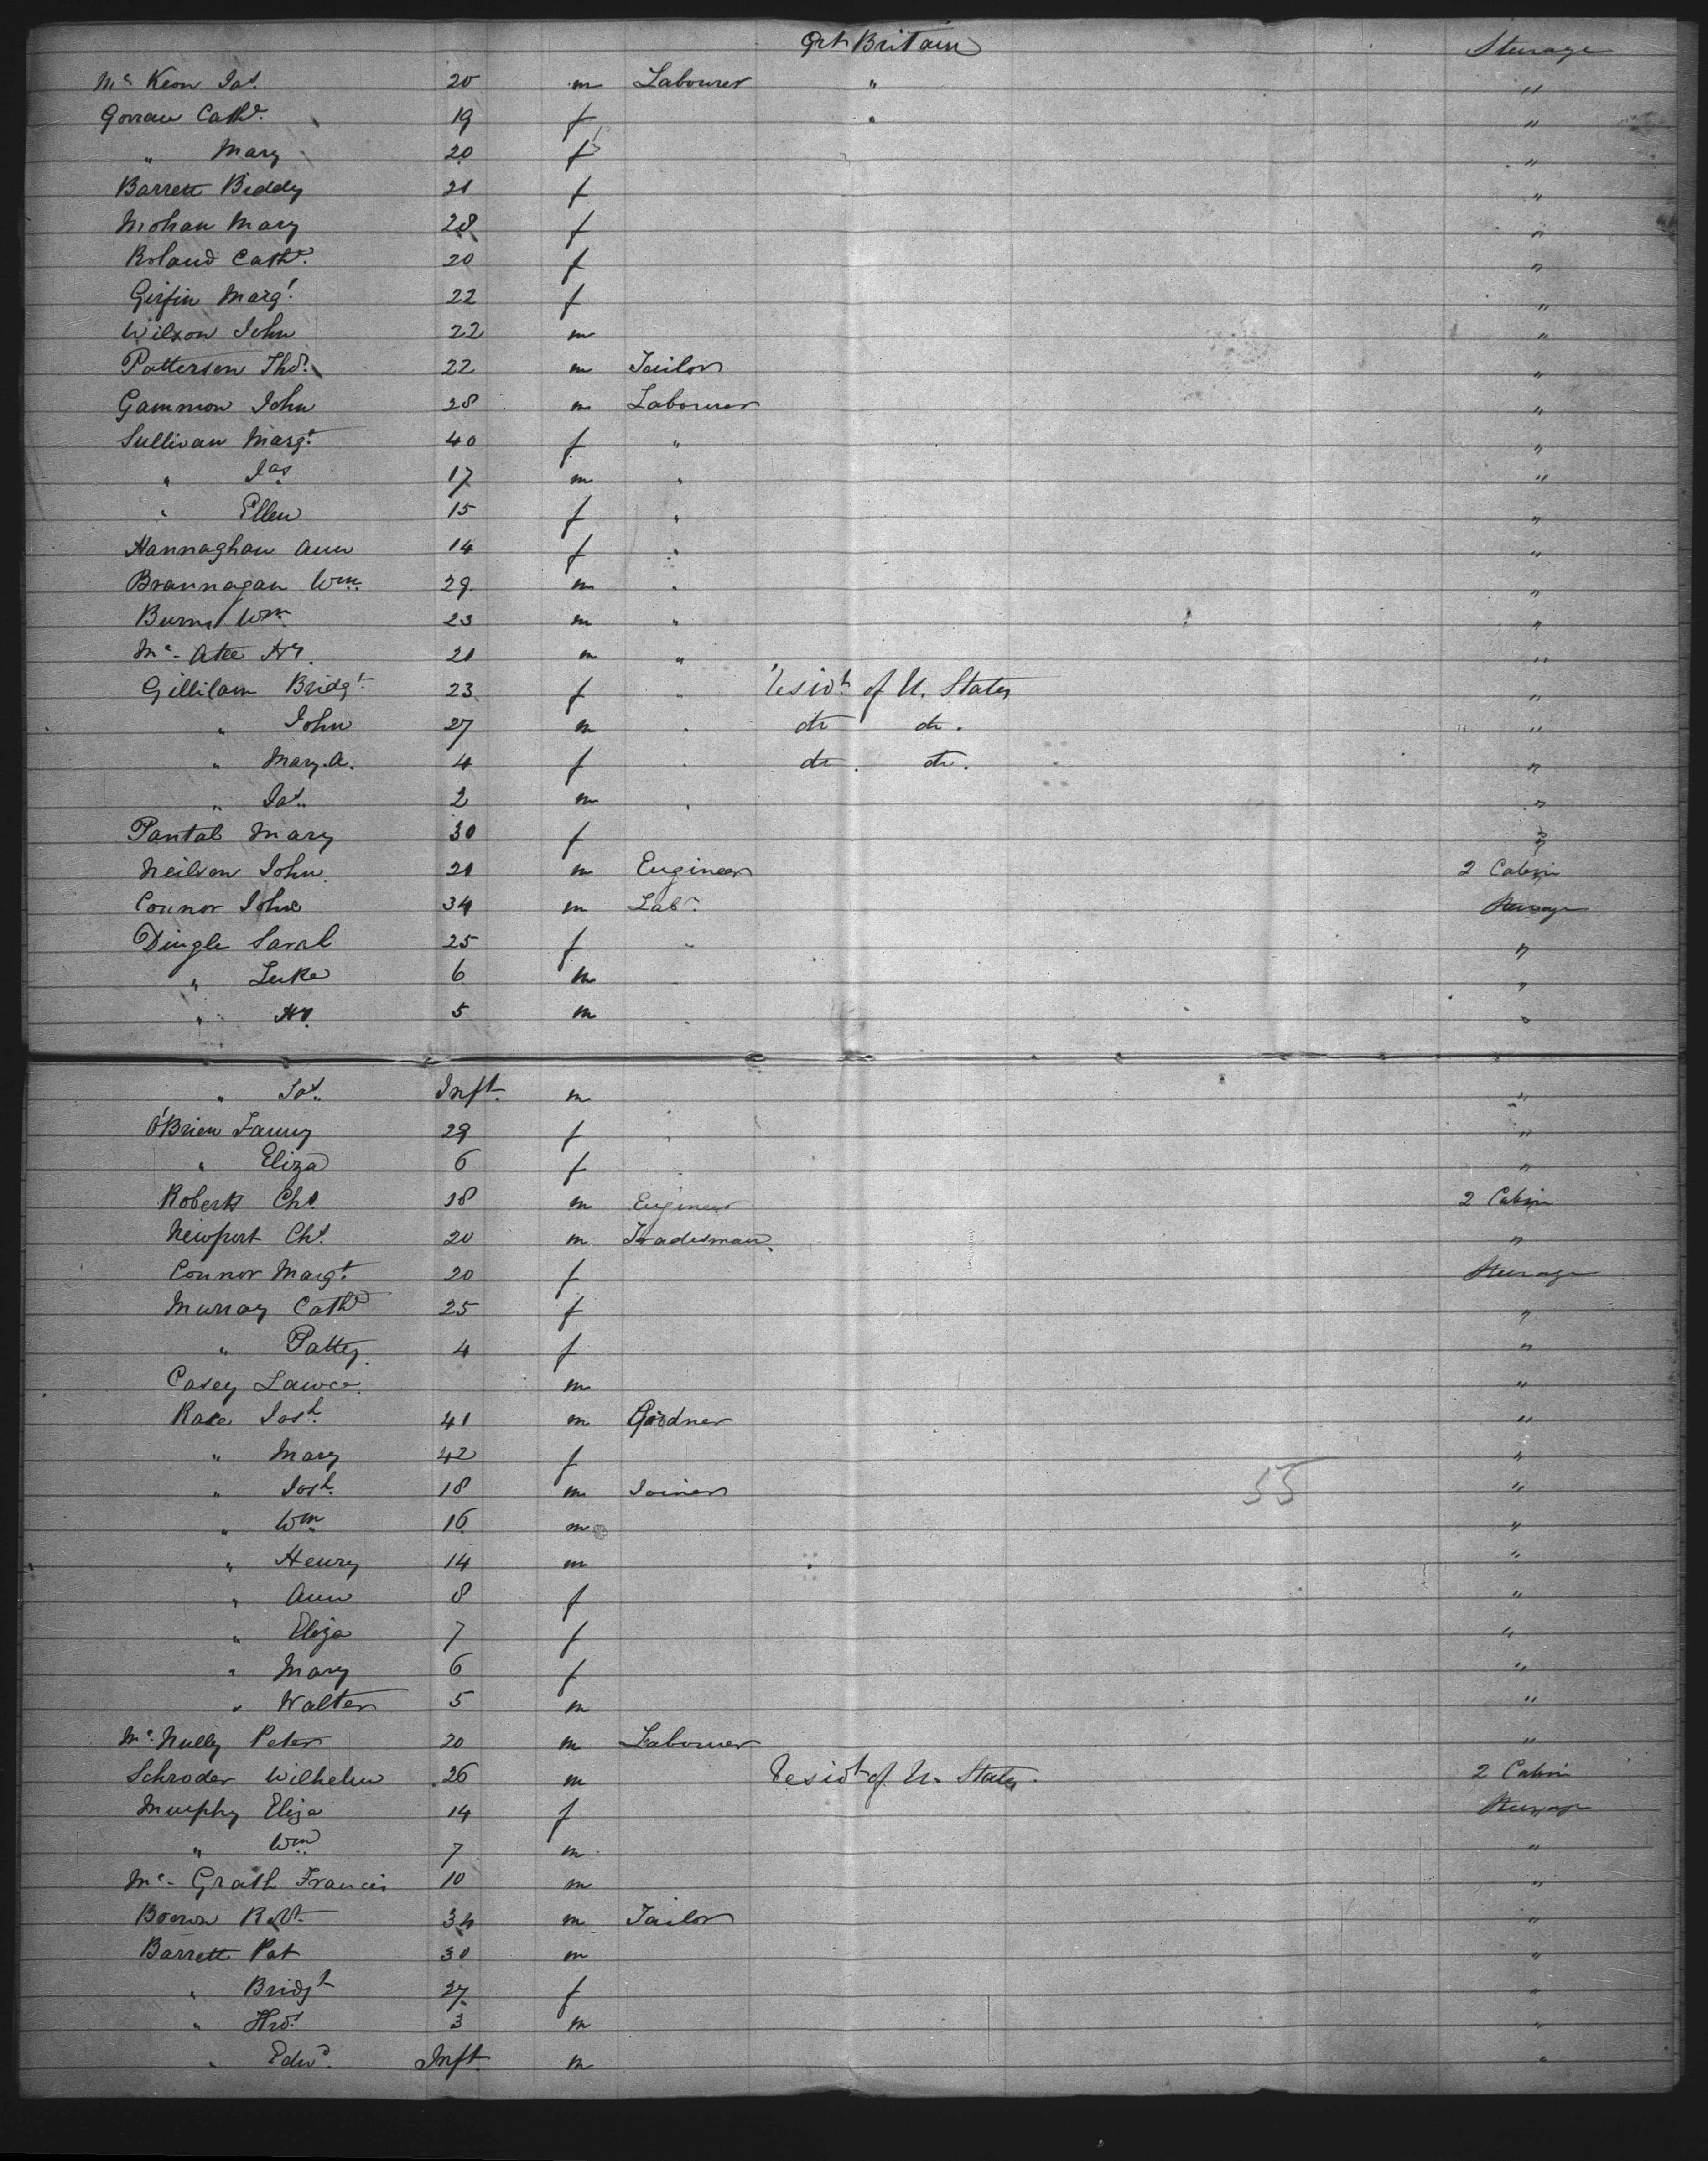 Grt Britain Steerage
Mc Keon Jas. 20 m Labourer " "
Gorrau Cathe. 19 f " "
" Mary 20 f "
Barrett Biddy 21 f "
Mohan Mary 28 f "
Boland Cathe. 20 f "
Girfin Margt. 22 f "
Wilson John 22 m "
Patterson Thos. 22 m Tailor "
Gammon John 28 m Labourer "
Sullivan Margt. 40 f " "
" Jas 17 m " "
" Ellen 15 f " "
Hannaghan Ann 14 f " "
Brannagan Wm. 29 m " "
Burns Wm 23 m " "
Mc Atee Hy. 21 m " "
Gillilam Bridgt. 23 f " residt of U. States "
" John 27 m " do do. "
" Mary. A. 4 f " do. do. "
" Jas. 2 m " "
Pantal Mary 30 f "
Neilson John 21 m Engineer 2 Cabin
Connor John 34 m Labr. Steerage
Dingle Sarah 25 f " "
" Luke 6 m "
" Hy. 5 m "
" Jas. Inft. m "
O'Brien Fanny 29 f "
" Eliza 6 f "
Roberts Chs. 18 m Engineer 2 Cabin
Newport Chs. 20 m Tradesman. "
Connor Margt. 20 f Steerage
Murray Cathe 25 f "
" Patty. 4 f "
Casey Lawce. m "
Rose Josh. 41 m Gardner "
" Mary 42 f "
" Josh. 18 m Joiner 55 "
" Wm 16 m "
" Henry 14 m "
" Ann 8 f "
" Eliza 7 f "
" Mary 6 f "
" Walter 5 m "
Mc. Nully Peter 20 m Labourer "
Schroder Wilhelm 26 m residt of U. States. 2 Cabin
Murphy Eliza 14 f Steerage
" Wm 7 m "
Mc- Grath Francis 10 m "
Brown Robt. 34 m Tailor "
Barrett Pat 30 m "
" Bridgt 27 f "
" Thos. 3 m "
" Edwd. Inft. m "